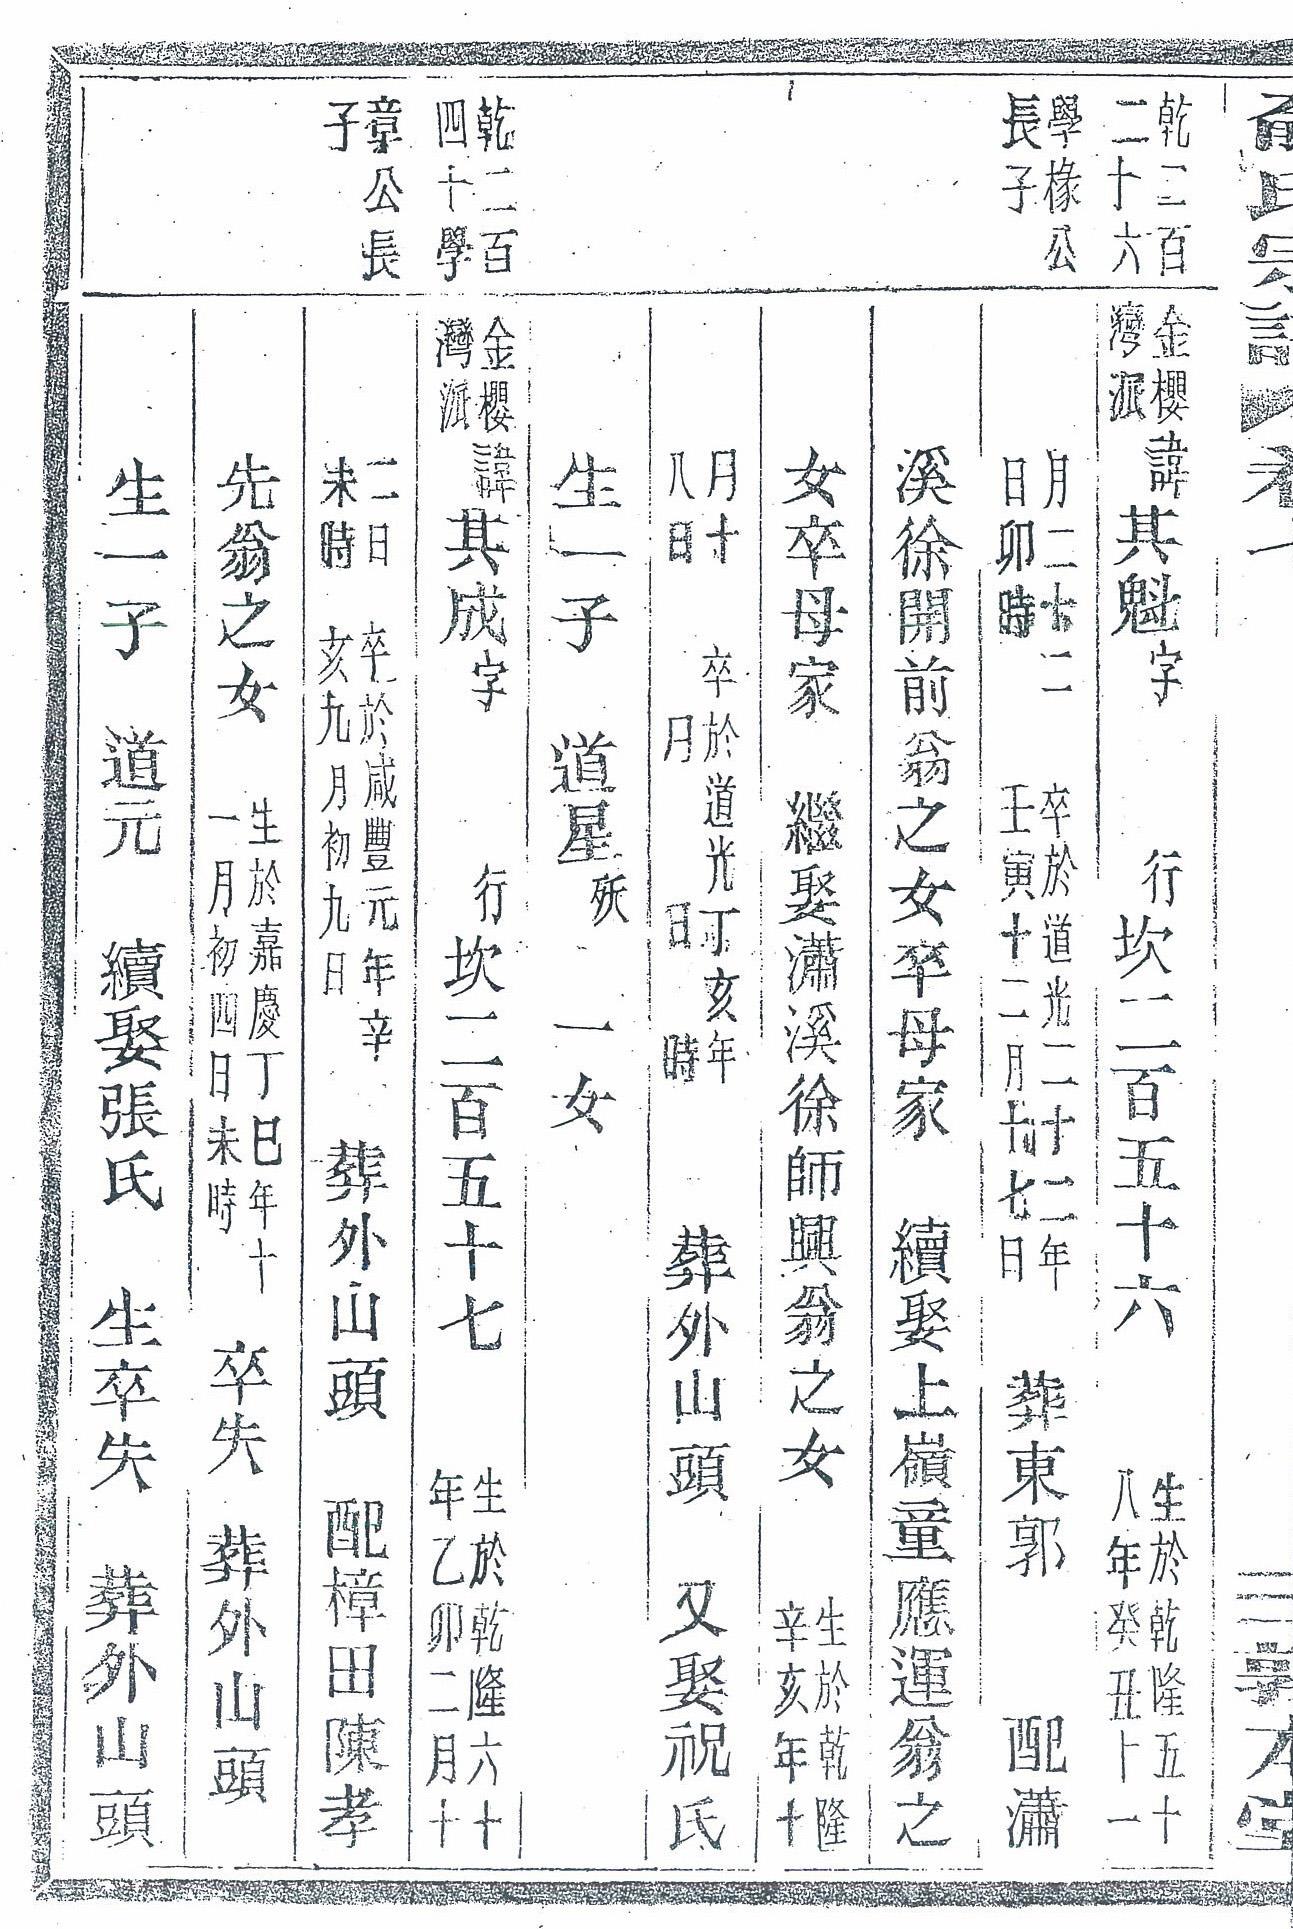 氏宗譜 卷一 敦本堂
乾二百
二十六
學椽公
長子
金櫻
灣派
諱其魁字 行坎二百五十六 生於乾隆五十
八年癸丑十一
月二十二
日卯時 卒於道光二十二年
壬寅十二月十七日 葬東郭 配瀟
溪徐開前翁之女卒母家 續娶上嶺童應運翁之
女卒母家 繼娶瀟溪徐師興翁之女 生於乾隆
辛亥年十
月十
八日 卒於道光丁亥年
月 日 時 葬外山頭 又娶祝氏
生一子 道星殀 一女
乾二百
四十學
章公長
子
金櫻
灣派
諱其成字 行坎二百五十七 生於乾隆六十
年乙卯二月十
二日
未時 卒於咸豐元年辛
亥九月初九日 葬外山頭 配樟田陳孝
先翁之女 生於嘉慶丁巳年十
一月初四日未時 卒失 葬外山頭
生一子 道元 續娶張氏 生卒失 葬外山頭